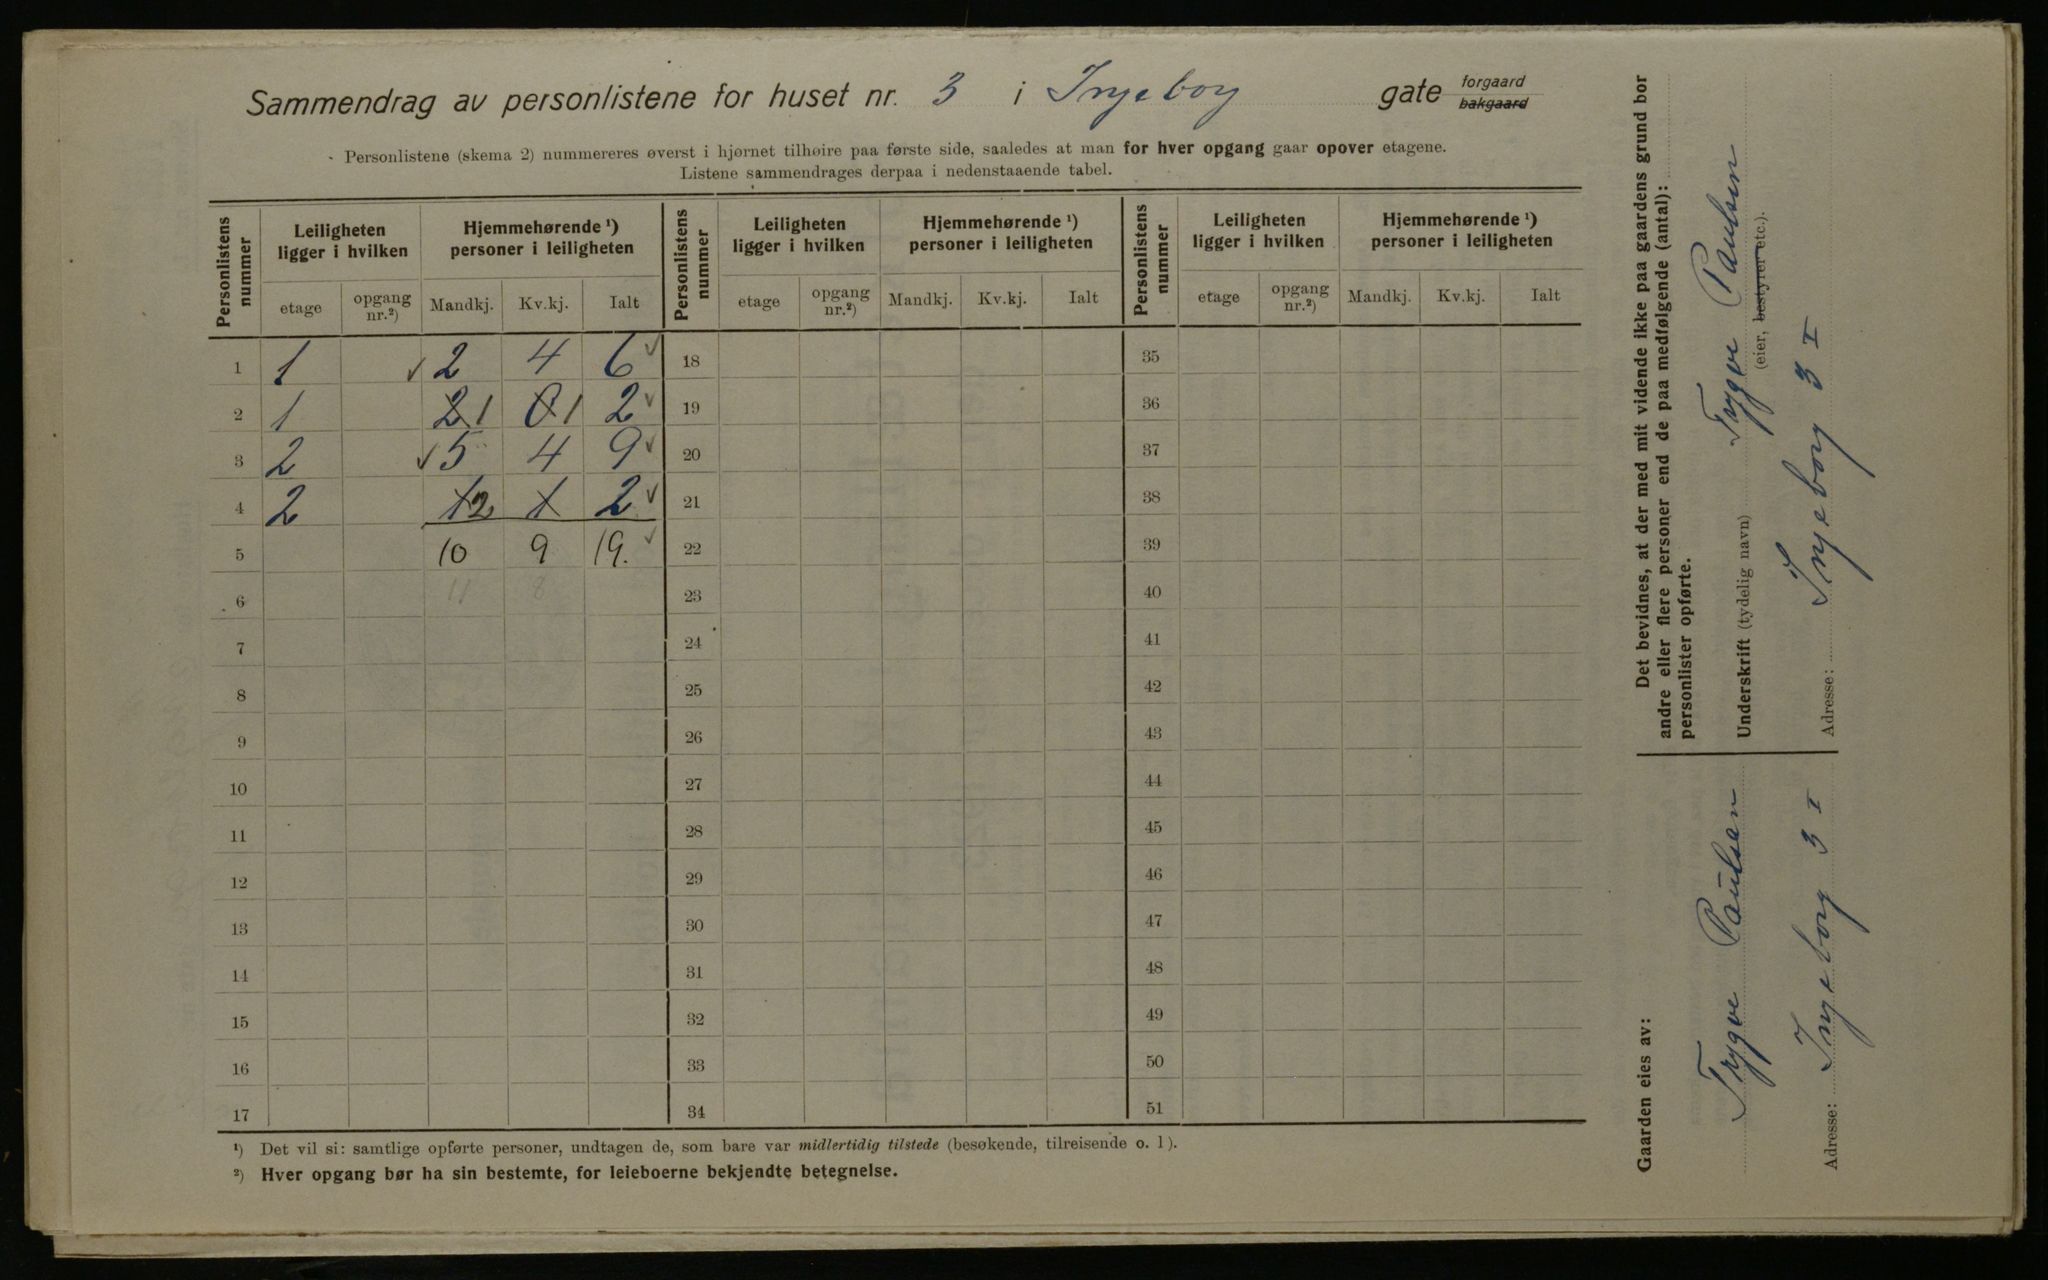 Sammendrag av personlistene for huset nr. 3 i Ingeborg gate forgaard bakgaard
Personlistene (skema 2) nummereres øverst i hjørnet tilhøire paa første side, saaledes at man for hver opgang gaar opover etagene.
Listene sammendrages derpaa i nedenstaaende tabel.
Personlistens nummer Leiligheten ligger i hvilken Hjemmehørende ¹) personer i leiligheten Personlistens nummer Leiligheten ligger i hvilken Hjemmehørende ¹) personer i leiligheten Personlistens nummer Leiligheten ligger i hvilken Hjemmehørende ¹) personer i leiligheten
etage opgang nr.²) Mandkj. Kv.kj. Ialt etage opgang nr.²) Mandkj. Kv.kj. Ialt etage opgang nr.²) Mandkj. Kv.kj. Ialt
1 1 ✓ 2 4 6 ✓ 18 35
2 1 2 1 0 1 2 ✓ 19 36
3 2 ✓ 5 4 9 ✓ 20 37
4 2 1 2 1 2 ✓ 21 38
5 10 9 19. ✓ 22 39
6 11 8 23 40
7 24 41
8 25 42
9 26 43
10 27 44
11 28 45
12 29 46
13 30 47
14 31 48
15 32 49
16 33 50
17 34 51
¹) Det vil si: samtlige opførte personer, undtagen de, som bare var midlertidig tilstede (besøkende, tilreisende o. l).
²) Hver opgang bør ha sin bestemte, for leieboerne bekjendte betegnelse.
Det bevidnes, at der med mit vidende ikke paa gaardens grund bor
andre eller flere personer end de paa medfølgende (antal):
personlister opførte.
Underskrift (tydelig navn) Trygve Paulsen
(eier, bestyrer etc.).
Adresse: Ingeborg 3 I
Gaarden eies av:
Trygve Paulsen
Adresse: Ingeborg 3 I